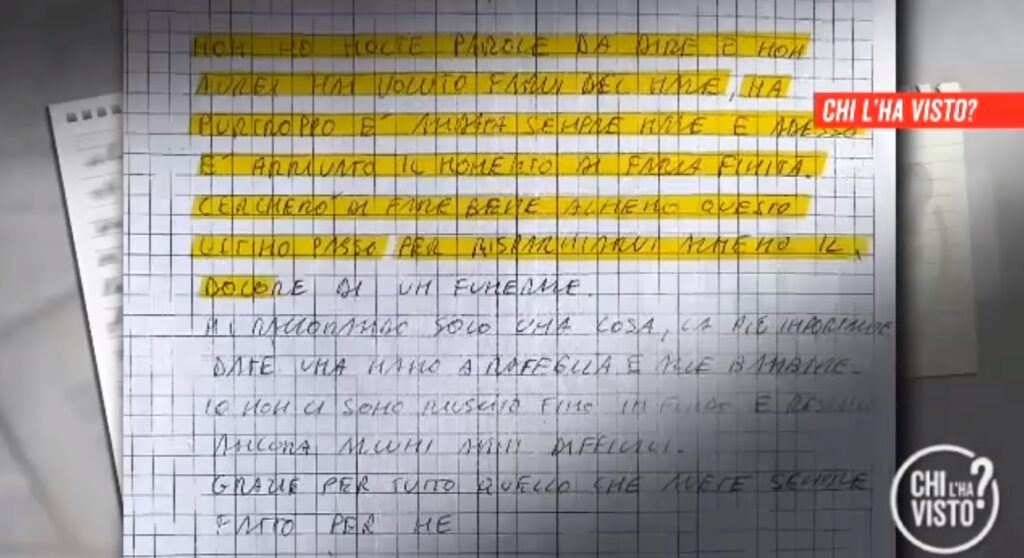 NON HO MOLTE PAROLE DA DIRE E NON
AVREI MAI VOLUTO FARVI DEL MALE, MA
PURTROPPO E' ANDATA SEMPRE MALE E ADESSO
E' ARRIVATO IL MOMENTO DI FARLA FINITA.
CERCHERO' DI FARE BENE ALMENO QUESTO
ULTIMO PASSO PER RISPARMIARVI ALMENO IL
DOLORE DI UN FUNERALE.
MI RACCOMANDO SOLO UNA COSA, LA PIÙ IMPORTANTE
DATE UNA MANO A RAFFAELLA E ALLE BAMBINE.
IO NON CI SONO RIUSCITO FINO IN FONDO E
ANCORA ALCUNI ANNI DIFFICILI.
GRAZIE PER TUTTO QUELLO CHE AVETE SEMPRE
FATTO PER ME
CHI L'HA VISTO?
CHI L'HA VISTO?